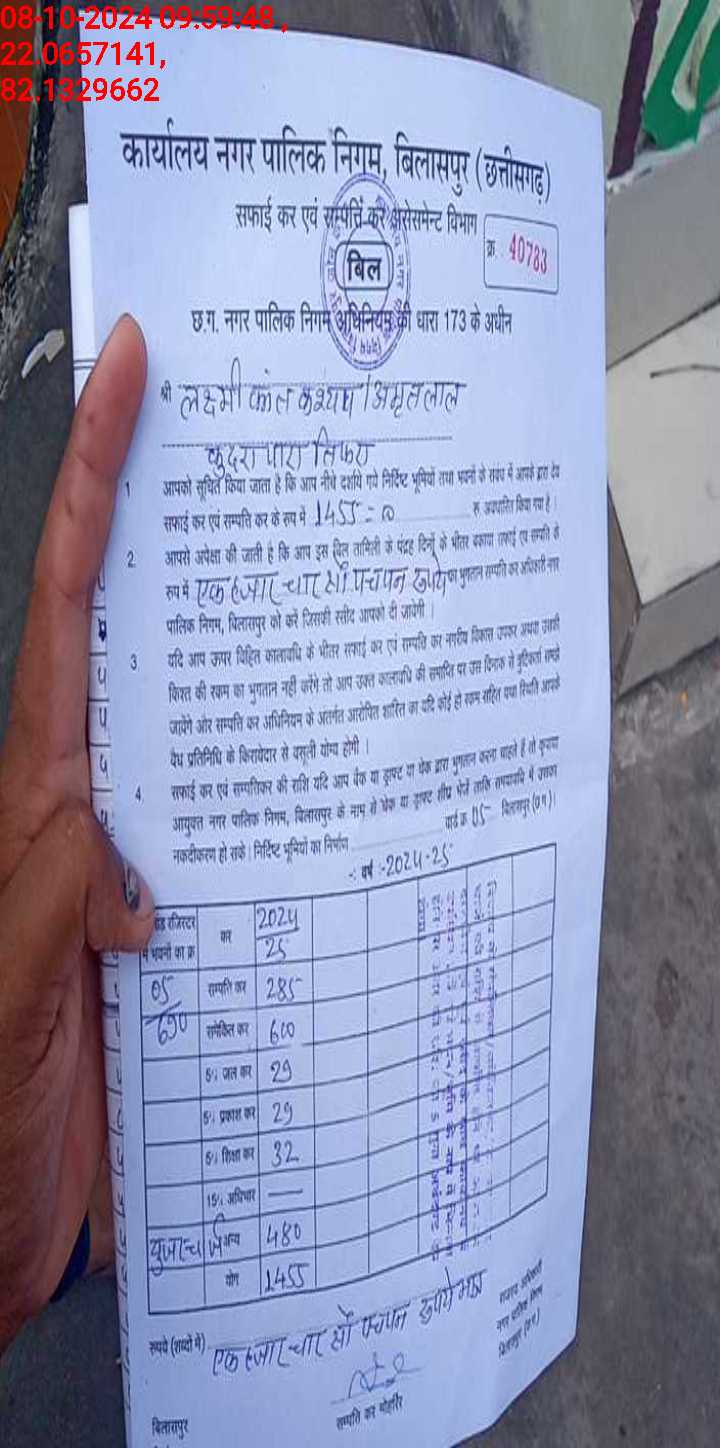 08-10-2024 09:59:48 ,
22.0657141,
82.1329662
कार्यालय नगर पालिक निगम, बिलासपुर (छत्तीसगढ़)
सफाई कर एवं सम्पत्ति कर असेसमेन्ट विभाग
बिल
क्र. 40783
छ.ग. नगर पालिक निगम अधिनियम की धारा 173 के अधीन
श्री लक्ष्मी कांत कश्यप / अमृतलाल
कुदरा पारा तिफरा
1 आपको सूचित किया जाता है कि आप नीचे दर्शाये गये निर्दिष्ट भूमियों तथा भवनों के संबंध में आपके द्वारा देय
सफाई कर एवं सम्पत्ति कर के रूप में 1455=0 रू अवधारित किया गया है।
2. आपसे अपेक्षा की जाती है कि आप इस बिल तामिली के पंद्रह दिनों के भीतर बकाया सफाई एवं सम्पति के
रूप में एक हजार चार सौ पचपन रूपये का भुगतान सम्पति कर अधिकारी नगर
पालिक निगम, बिलासपुर को करें जिसकी रसीद आपको दी जावेगी।
3 यदि आप ऊपर विहित कालावधि के भीतर सफाई कर एवं सम्पति कर नगरीय विकास उपकर अथवा उसकी
किश्त की रकम का भुगतान नहीं करेंगे तो आप उक्त कालावधि की समाप्ति पर उस दिनांक से त्रुटिकर्ता समझे
जावेंगे और सम्पत्ति कर अधिनियम के अंतर्गत आरोपित शास्ति का यदि कोई हो रकम सहित यथा स्थिति आपके
वैध प्रतिनिधि के किरायेदार से वसूली योग्य होगी।
4. सफाई कर एवं सम्पत्तिकर की राशि यदि आप बैंक या ड्राफ्ट या चेक द्वारा भुगतान करना चाहते हैं तो कृपया
आयुक्त नगर पालिक निगम, बिलासपुर के नाम से चेक या ड्राफ्ट शीघ्र भेजें ताकि समयावधि में उसका
नकदीकरण हो सके। निर्दिष्ट भूमियों का निर्माण वार्ड क्र 05 बिलासपुर (छ.ग.)।
-: वर्ष :-2024-25
रजिस्टर में भवनों का क्र कर 2024 25
05 सम्पत्ति कर 285
690 समेकित कर 600
5% जल कर 29
5% प्रकाश कर 29
5% शिक्षा कर 32
15% अधिभार —
यूजर चार्ज अन्य 480
योग 1455
रूपये (शब्दों में) एक हजार चार सौ पचपन रूपये मात्र
राजस्व अधिकारी
नगर पालिक निगम
बिलासपुर (छ.ग.)
बिलासपुर
सम्पति कर मोहर्रिर